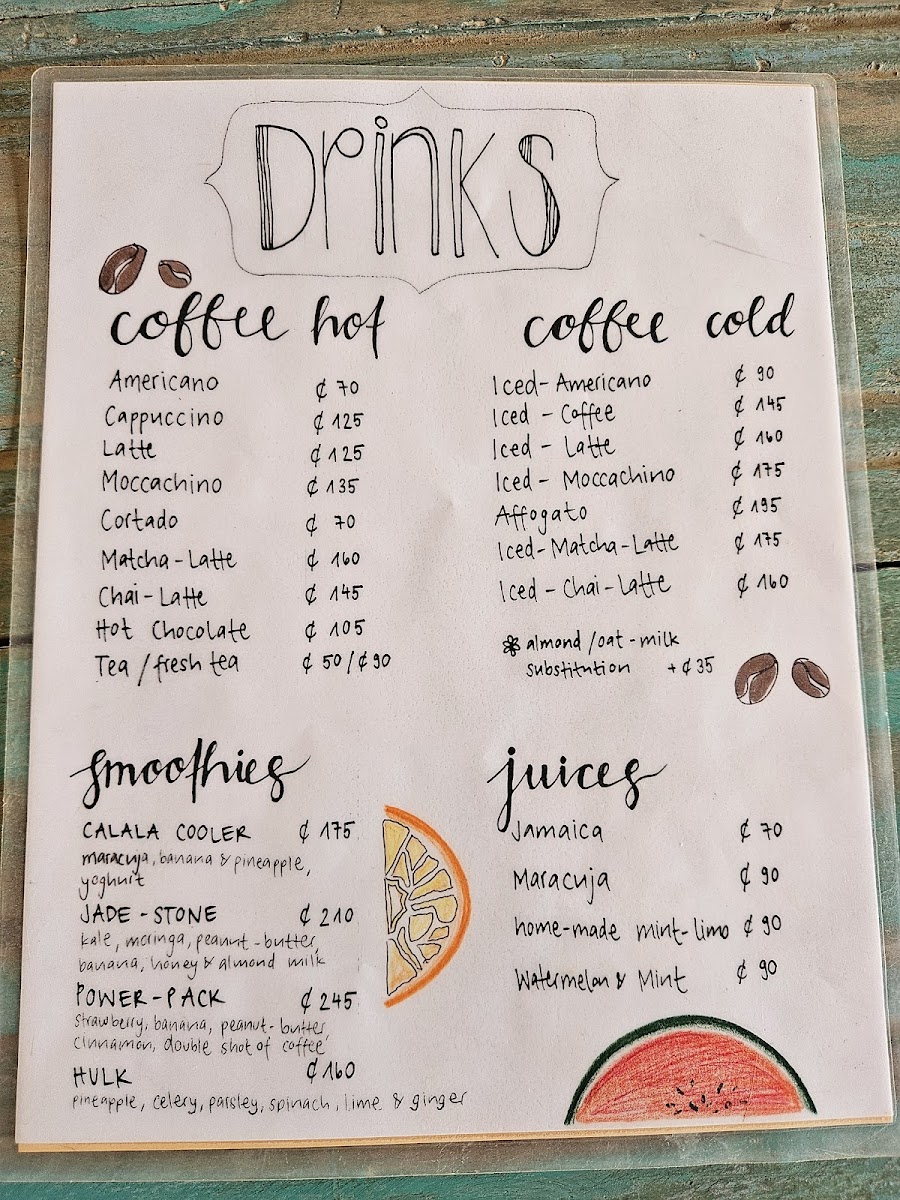 Drinks
coffee hot
Americano ₡ 70
Cappuccino ₡ 125
Latte ₡ 125
Moccachino ₡ 135
Cortado ₡ 70
Matcha-Latte ₡ 160
Chai-Latte ₡ 145
Hot Chocolate ₡ 105
Tea / fresh tea ₡ 50/₡ 90
coffee cold
Iced-Americano ₡ 90
Iced - Coffee ₡ 145
Iced - Latte ₡ 160
Iced - Moccachino ₡ 175
Affogato ₡ 195
Iced-Matcha-Latte ₡ 175
Iced - Chai-Latte ₡ 160
almond /oat-milk
substitution +₡ 35
smoothies
CALALA COOLER ₡ 175
maracuja, banana & pineapple,
yoghurt
JADE-STONE ₡ 210
kale, moringa, peanut-butter,
banana, honey & almond milk
POWER-PACK ₡ 245
strawberry, banana, peanut-butter,
cinnamon, double shot of coffee
HULK ₡ 160
pineapple, celery, parsley, spinach, lime & ginger
juices
Jamaica ₡ 70
Maracuja ₡ 90
home-made mint-limo ₡ 90
Watermelon & Mint ₡ 90